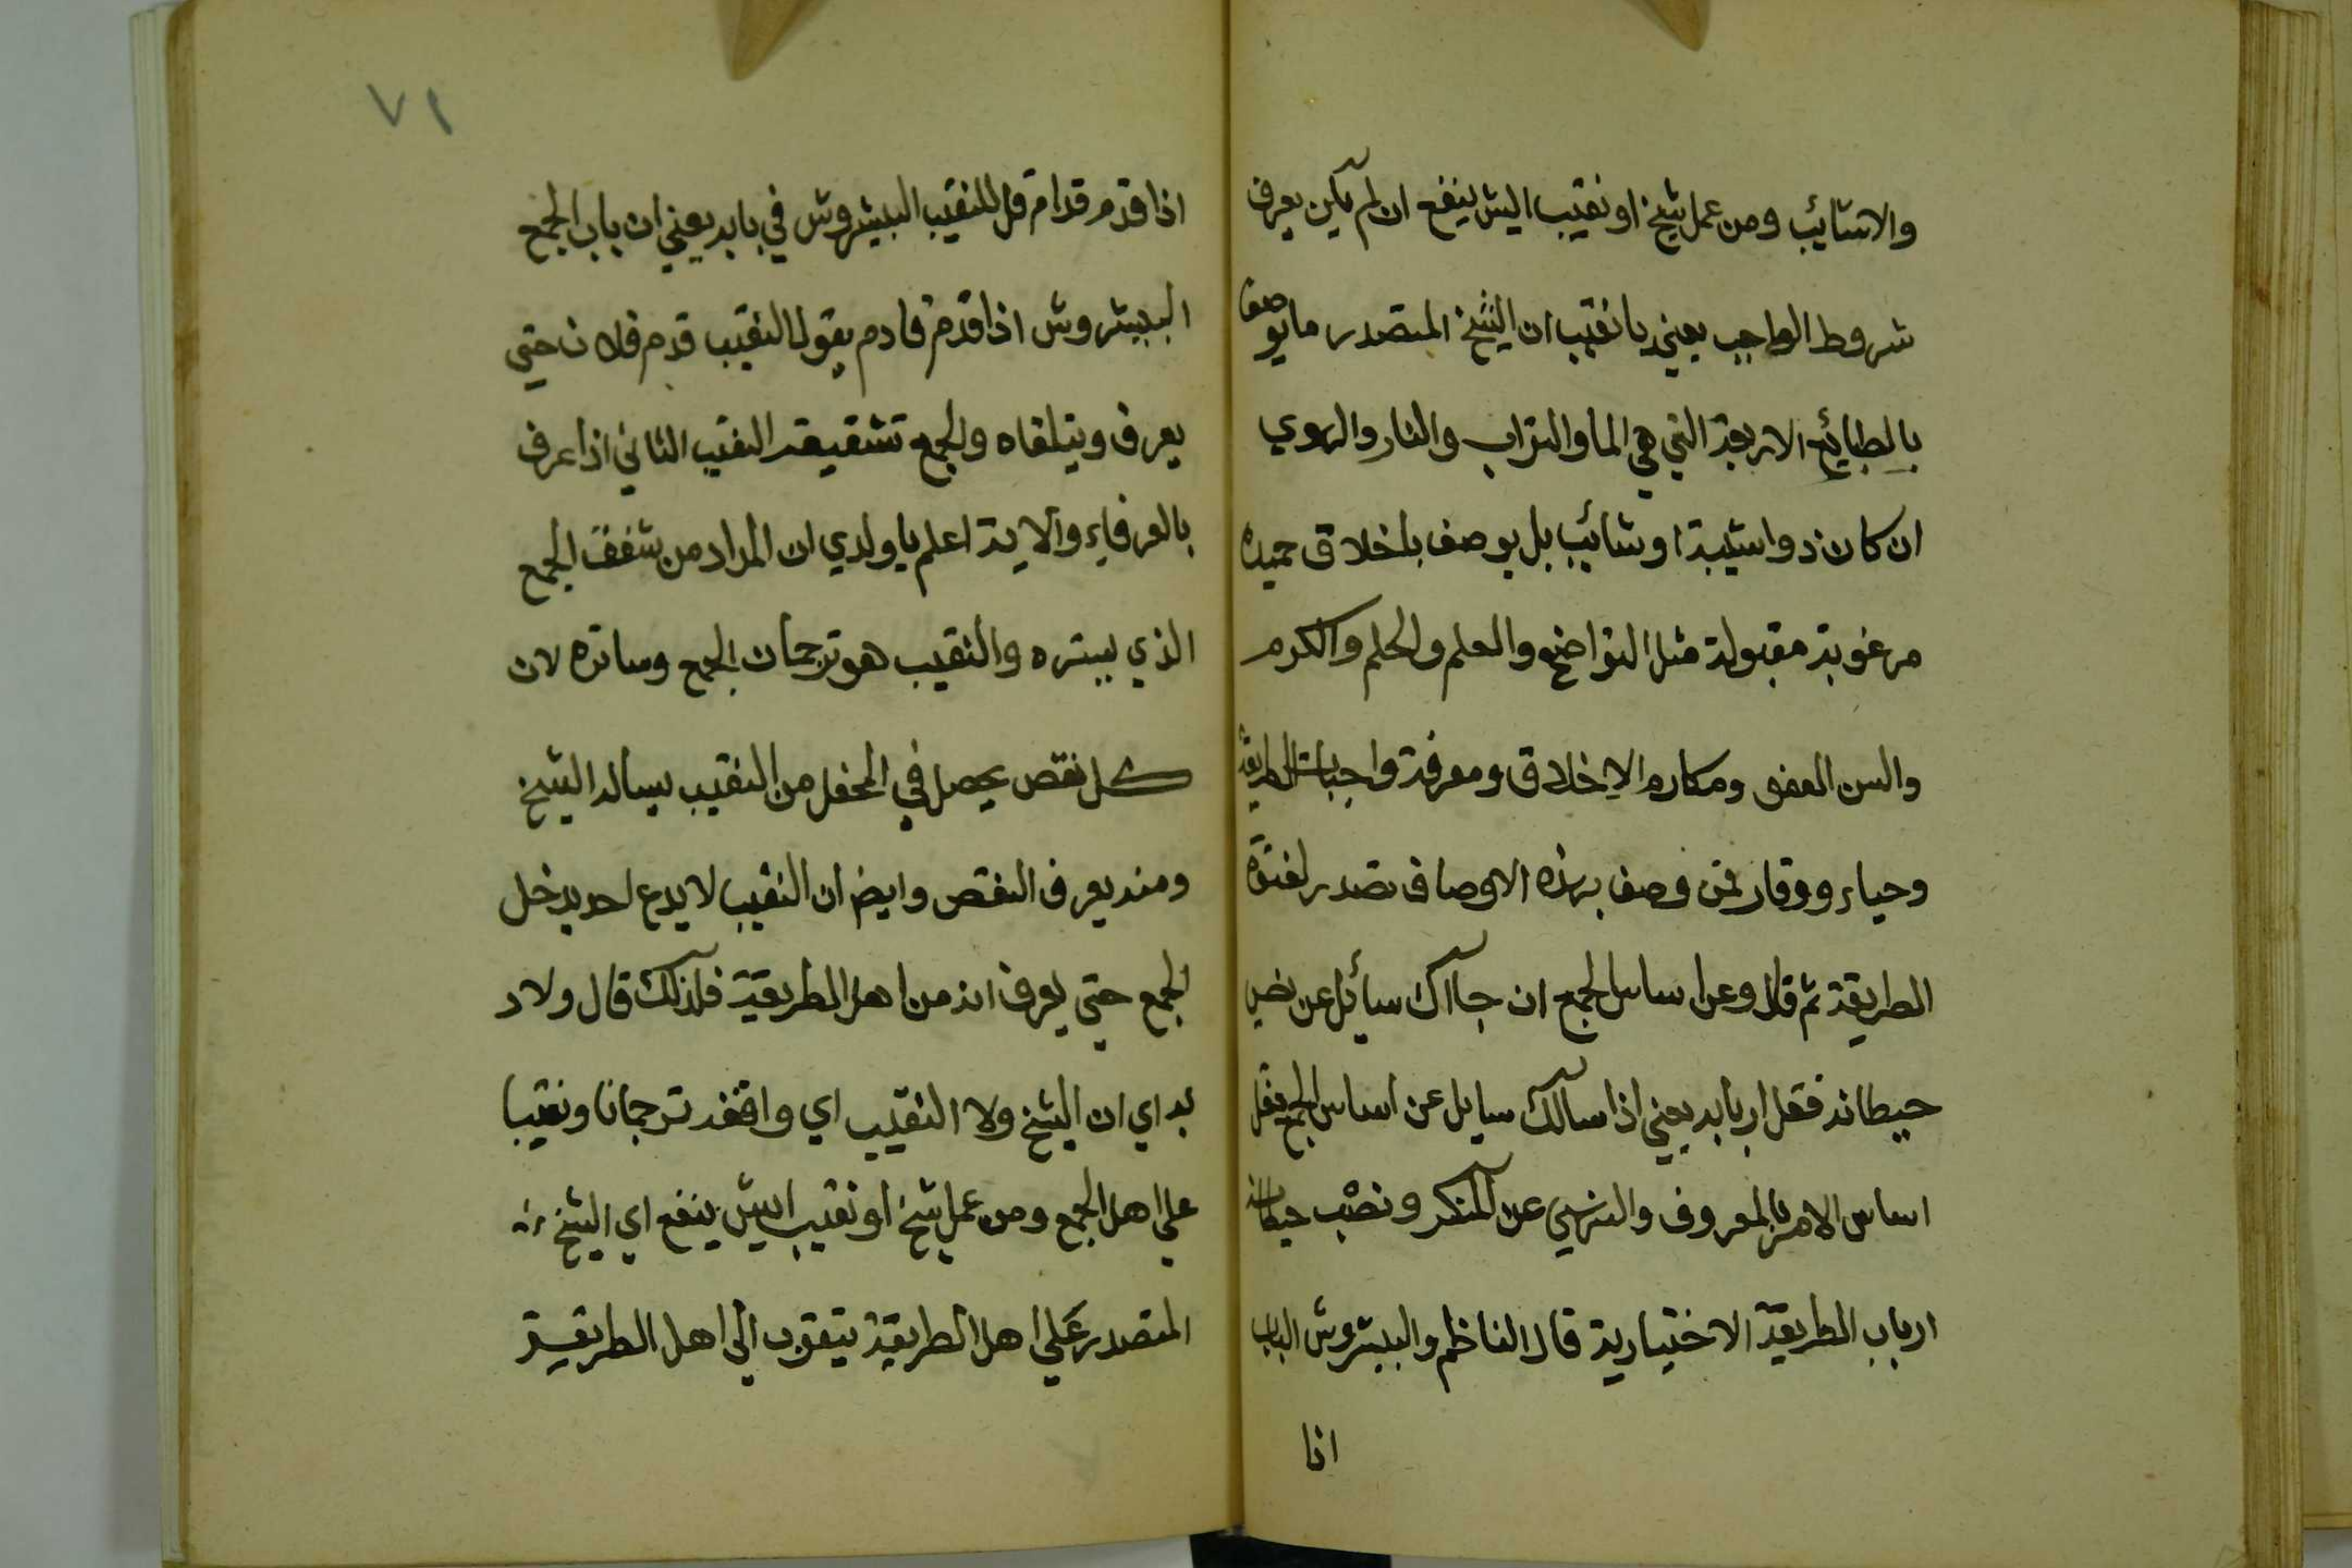 والاشائب ومن عمل شيخ او نقيب اليش ينفع ان لم يكن يعرف
شروط الواجب يعني يا نقيب ان الشيخ المتصدر ما يوصف
بالطبايع الاربعة التي هي الما والتراب والنار والهوي
ان كان ذو اشيبة او شائب بل يوصف باخلاق حميده
مرغوبة مقبولة مثل التواضع والعلم والحلم والكرم
والسن العفو ومكارم الاخلاق ومعرفة واجبات الطريقة
وحياء ووقار فمن وصف بهذه الاوصاف تصدر لفتوة
الطريقة ثم قال وعن اساس الجمع ان جااك سائل عن نص
حيطانه فقل اربابه يعني اذا سالك سايل عن اساس الجمع فقل
اساس الامر بالمعروف والنهي عن المنكر ونصب حيطانه
ارباب الطريقة الاختيارية قال الناظم والبيشروش الباب
اذا
٧١
اذا قدم قدامة قل للنقيب البيشروش في بابه يعني ان باب الجمع
البيشروش اذا قدم قادم يقول النقيب قدم فلان حتي
يعرف ويتلقاه والجمع تشقيقة النقيب الثاني اذا عرف
بالعرفاء والاية اعلم يا ولدي ان المراد من شفف الجمع
الذي يستره والنقيب هو ترجمان الجمع وساتره لان
كل نقص يحصل في المحفل من النقيب يساله الشيخ
ومنه يعرف النقص وايضا ان النقيب لا يدع احد يدخل
الجمع حتي يعرف انه من اهل الطريقة فلذلك قال ولاد
بد اي ان الشيخ ولا النقيب اي واقفه ترجمانا ونقيبا
علي اهل الجمع ومن عمل شيخ او نقيب اليش ينفع اي الشيخ
المتصدر علي اهل الطريقة يتقرب الي اهل الطريقة